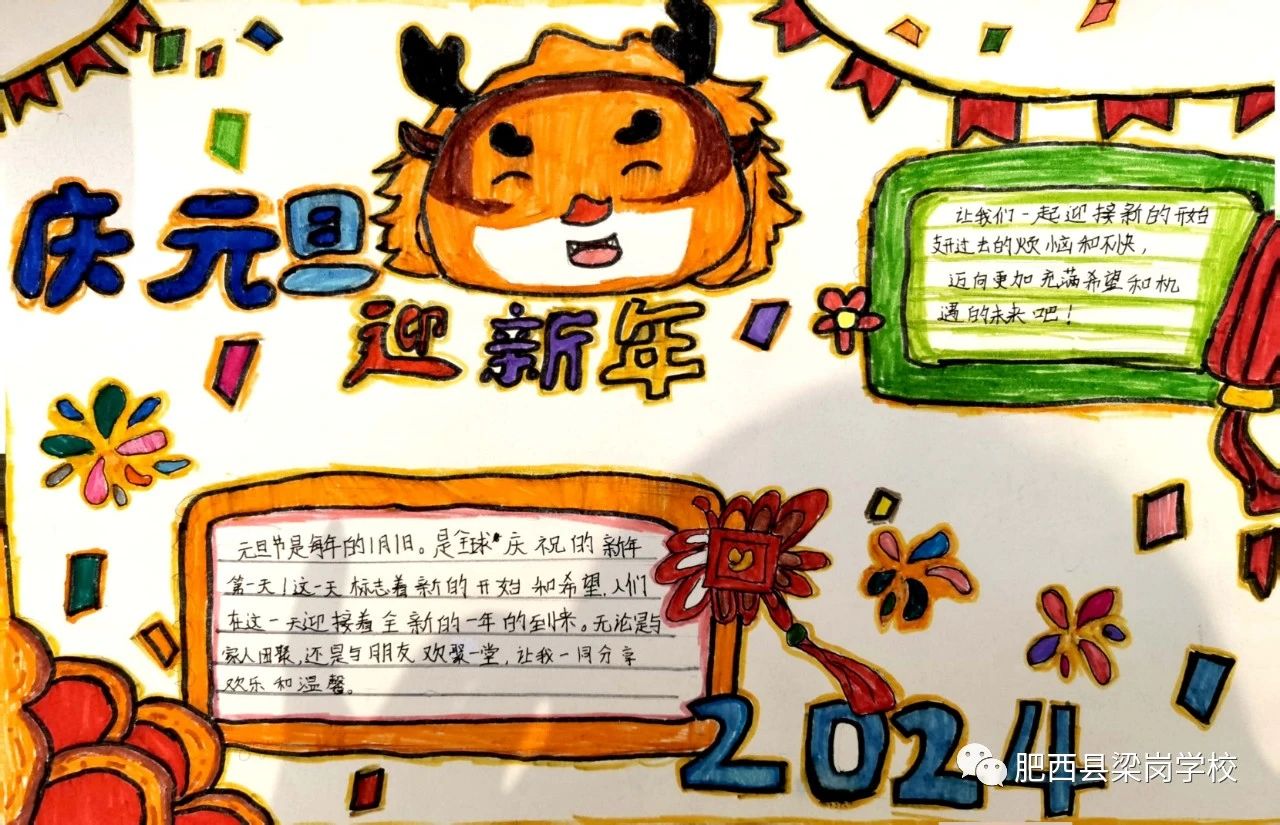 庆元旦
迎新年
让我们一起迎接新的开始
过去的烦恼和不快，
迈向更加充满希望和机
遇的未来吧！
元旦节是每年的1月1日。是全球庆祝的新年
第一天！这一天标志着新的开始和希望，人们
在这一天迎接着全新的一年的到来。无论是与
家人团聚，还是与朋友欢聚一堂，让我一同分享
欢乐和温馨。
2024
肥西县梁岗学校